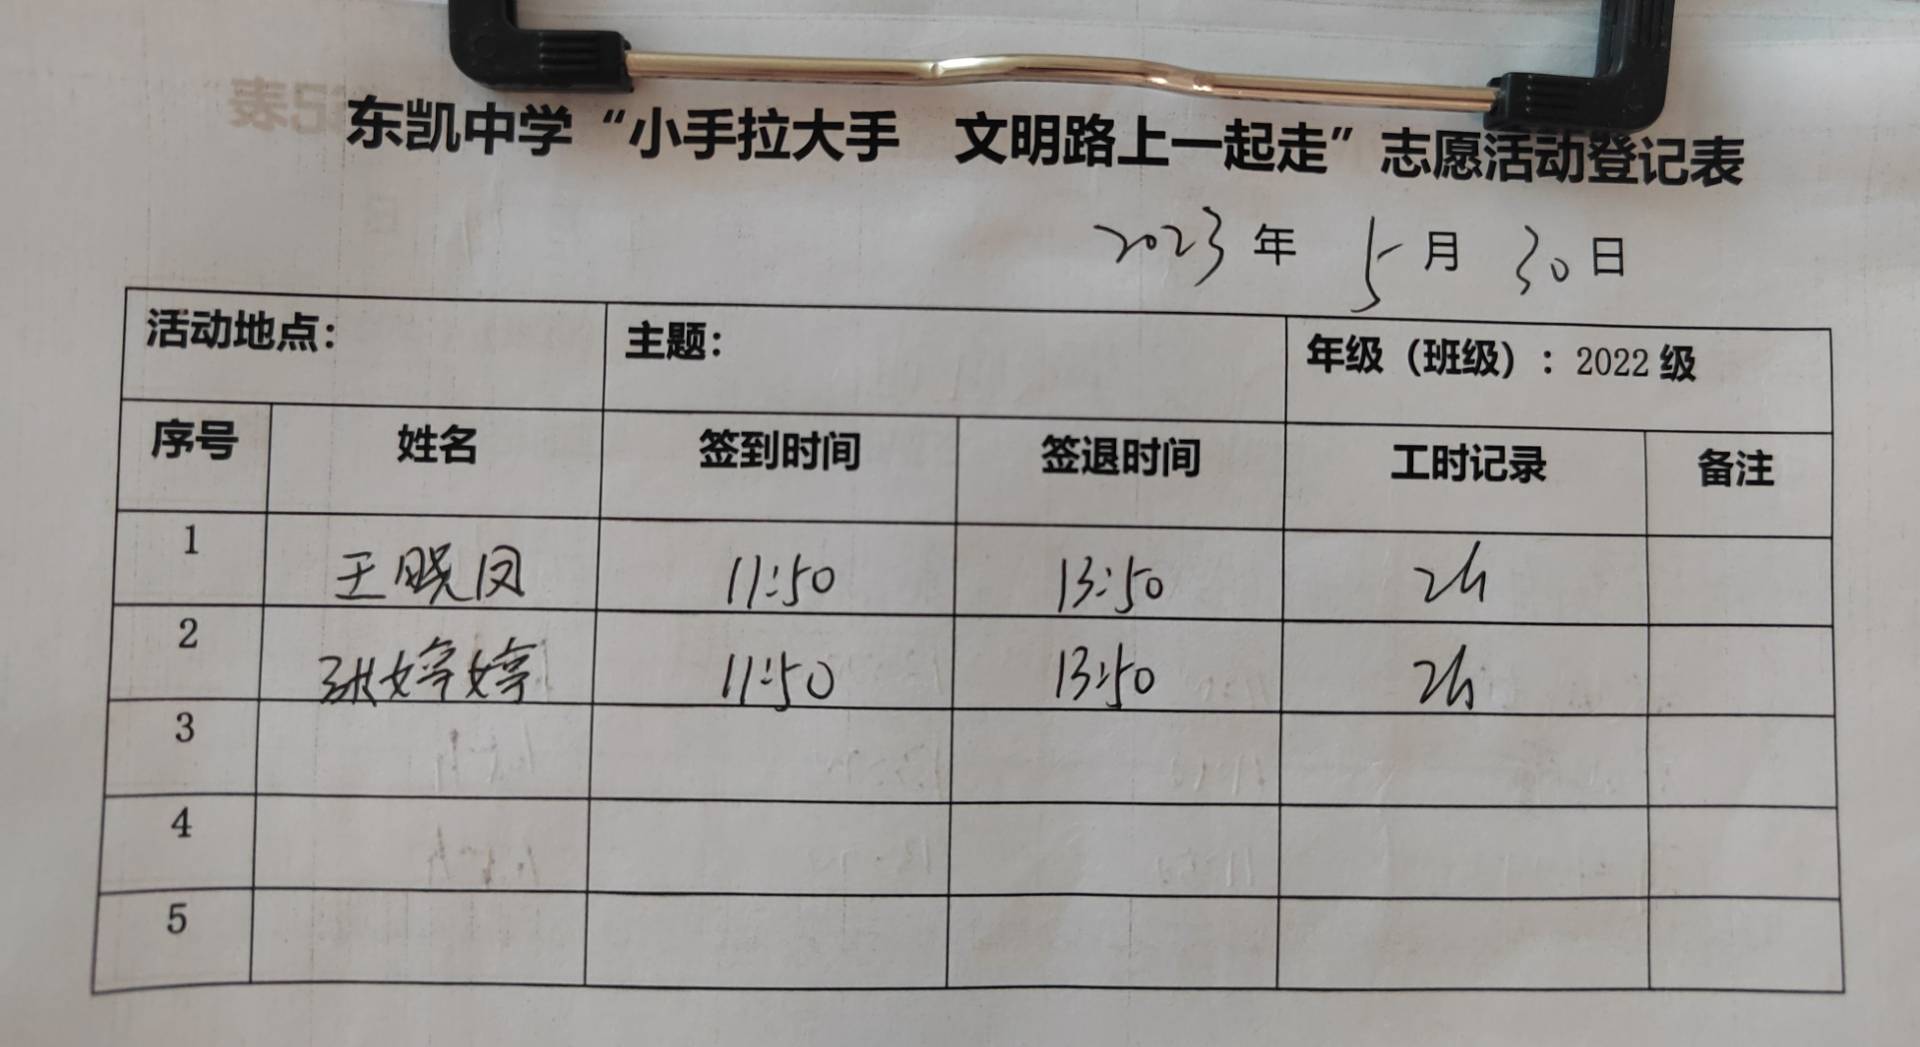 东凯中学“小手拉大手 文明路上一起走”志愿活动登记表
2023年 5月 30日
活动地点： 主题： 年级（班级）：2022级
序号 姓名 签到时间 签退时间 工时记录 备注
1 王晓凤 11:50 13:50 2h
2 张婷婷 11:50 13:50 2h
3
4
5